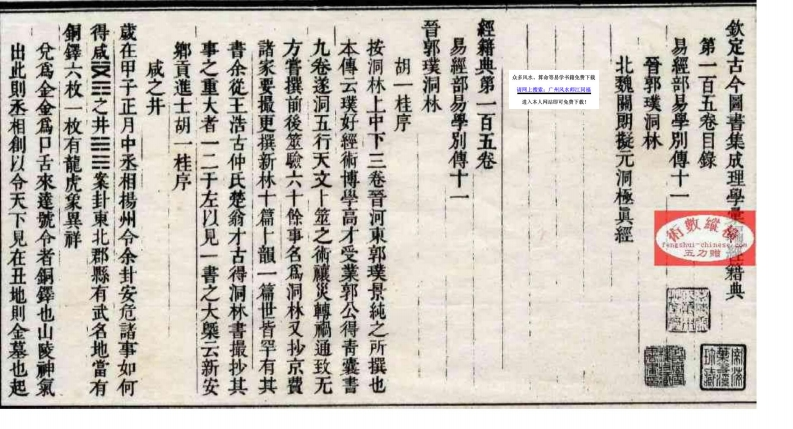 欽定古今圖書集成理學彙編經籍典
第一百五卷目錄
易經部易學別傳十一
晉郭璞洞林
北魏關朗擬元洞極眞經
經籍典第一百五卷
易經部易學別傳十一
晉郭璞洞林
胡一桂序
按洞林上中下三卷晉河東郭璞景純之所撰也
本傳云璞好經術博學高才受業郭公得靑囊書
九卷遂洞五行天文卜筮之術禳災轉禍通致无
方嘗撰前後筮驗六十餘事名爲洞林又抄京費
諸家要撮更撰新林十篇卜韻一篇世皆罕有其
書余從王浩古仲氏楚翁才古得洞林書撮抄其
事之重大者一二于左以見一書之大槩云新安
鄉貢進士胡一桂序
咸之井
歲在甲子正月中丞相揚州令余卦安危諸事如何
得咸之井案卦東北郡縣有武名地當有
銅鐸六枚一枚有龍虎象異祥
兌爲金金爲口舌來達號令者銅鐸也山陵神氣
出此則丞相創以令天下見在丑地則金墓也起
众多风水、算命等易学书籍免费下载
请网上搜索：广州风水师江同涵
进入本人网站即可免费下载！
術數縱橫
fengshui-chinese.com
五力赠